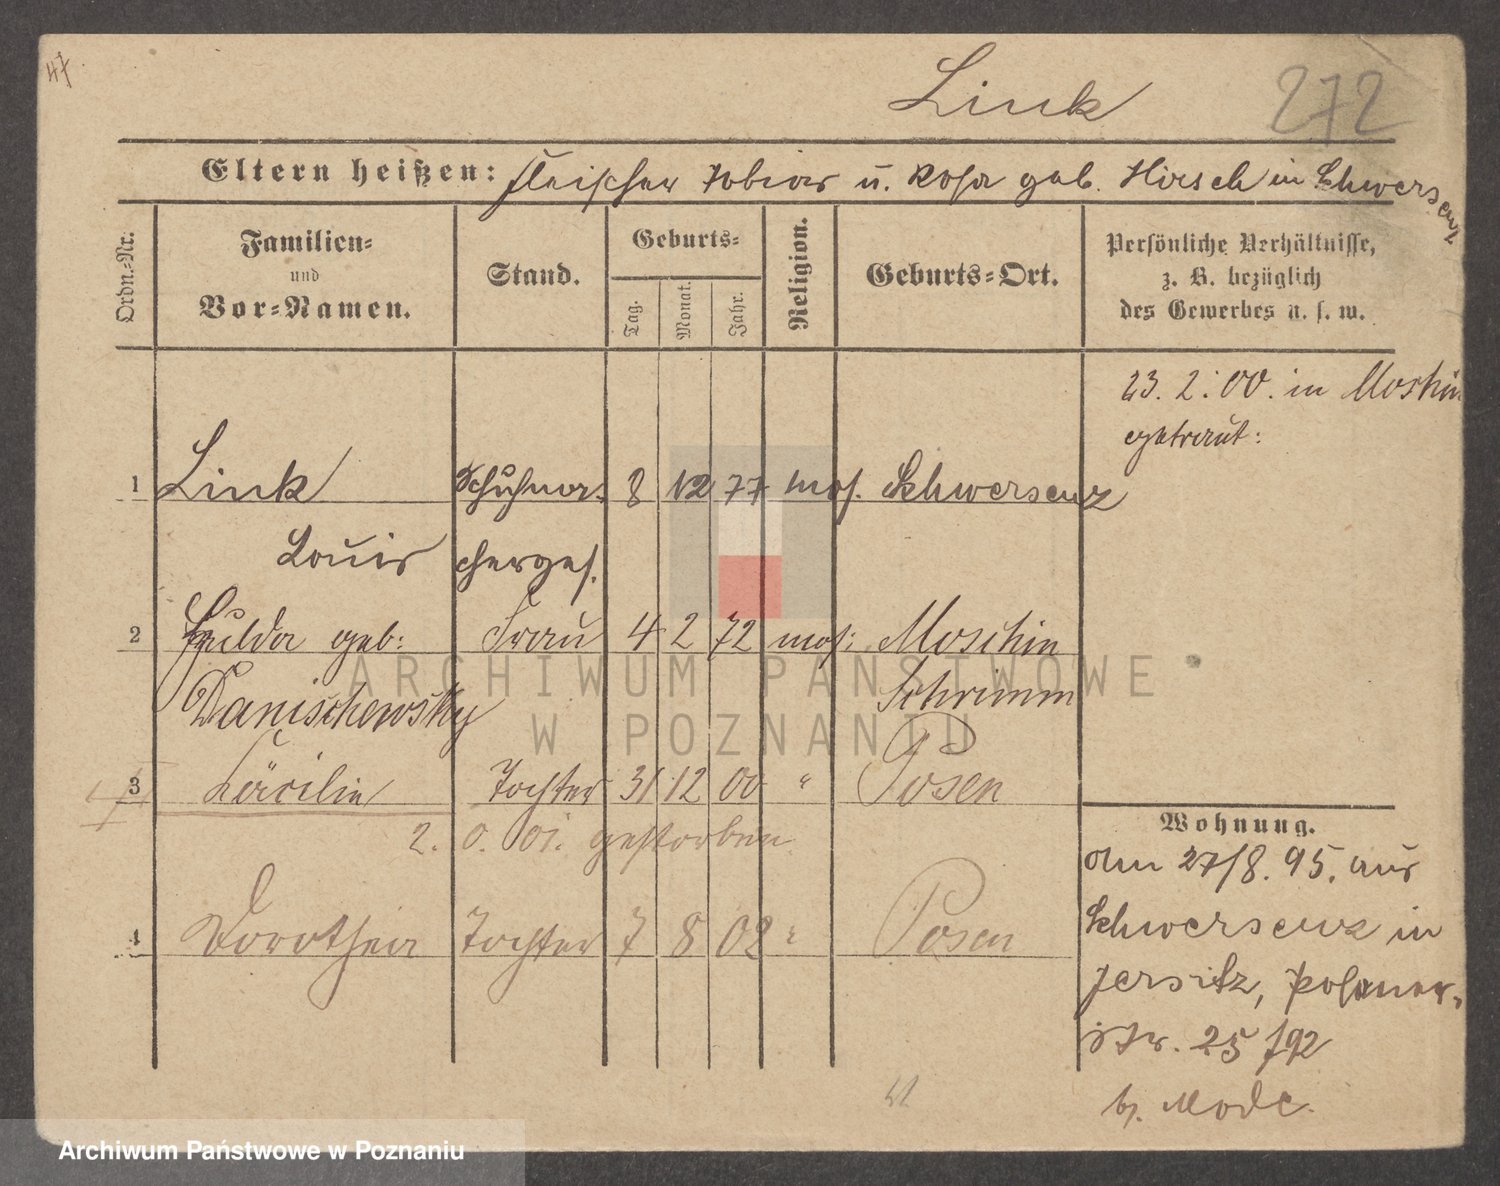 47
Link
272
Eltern heißen: Fleischer Tobias u. Rosa geb. Hirsch in Schwersenz
Ordn.-Nr.
Familien-
und
Vor-Namen.
Stand.
Geburts-
Tag.
Monat.
Jahr.
Religion.
Geburts-Ort.
Persönliche Verhältnisse,
z. B. bezüglich
des Gewerbes u. s. w.
23. 2. 00. in Moschin
getraut:
1 Link Schuhma- 8 12 77 mos. Schwersenz
Louis cherges.
2 Hulda geb: Frau 4 2 72 mos: Moschin
Danischewsky Schrimm
3 Cäcilie Tochter 31 12 00 " Posen
2. 0. 01. gestorben
4 Dorothea Tochter 7 8 02 " Posen
Wohnung.
Am 27/8. 95. aus
Schwersenz in
Jersitz, Posener-
str. 25 /92
b. Mode.
ARCHIWUM PAŃSTWOWE
W POZNANIU
Archiwum Państwowe w Poznaniu